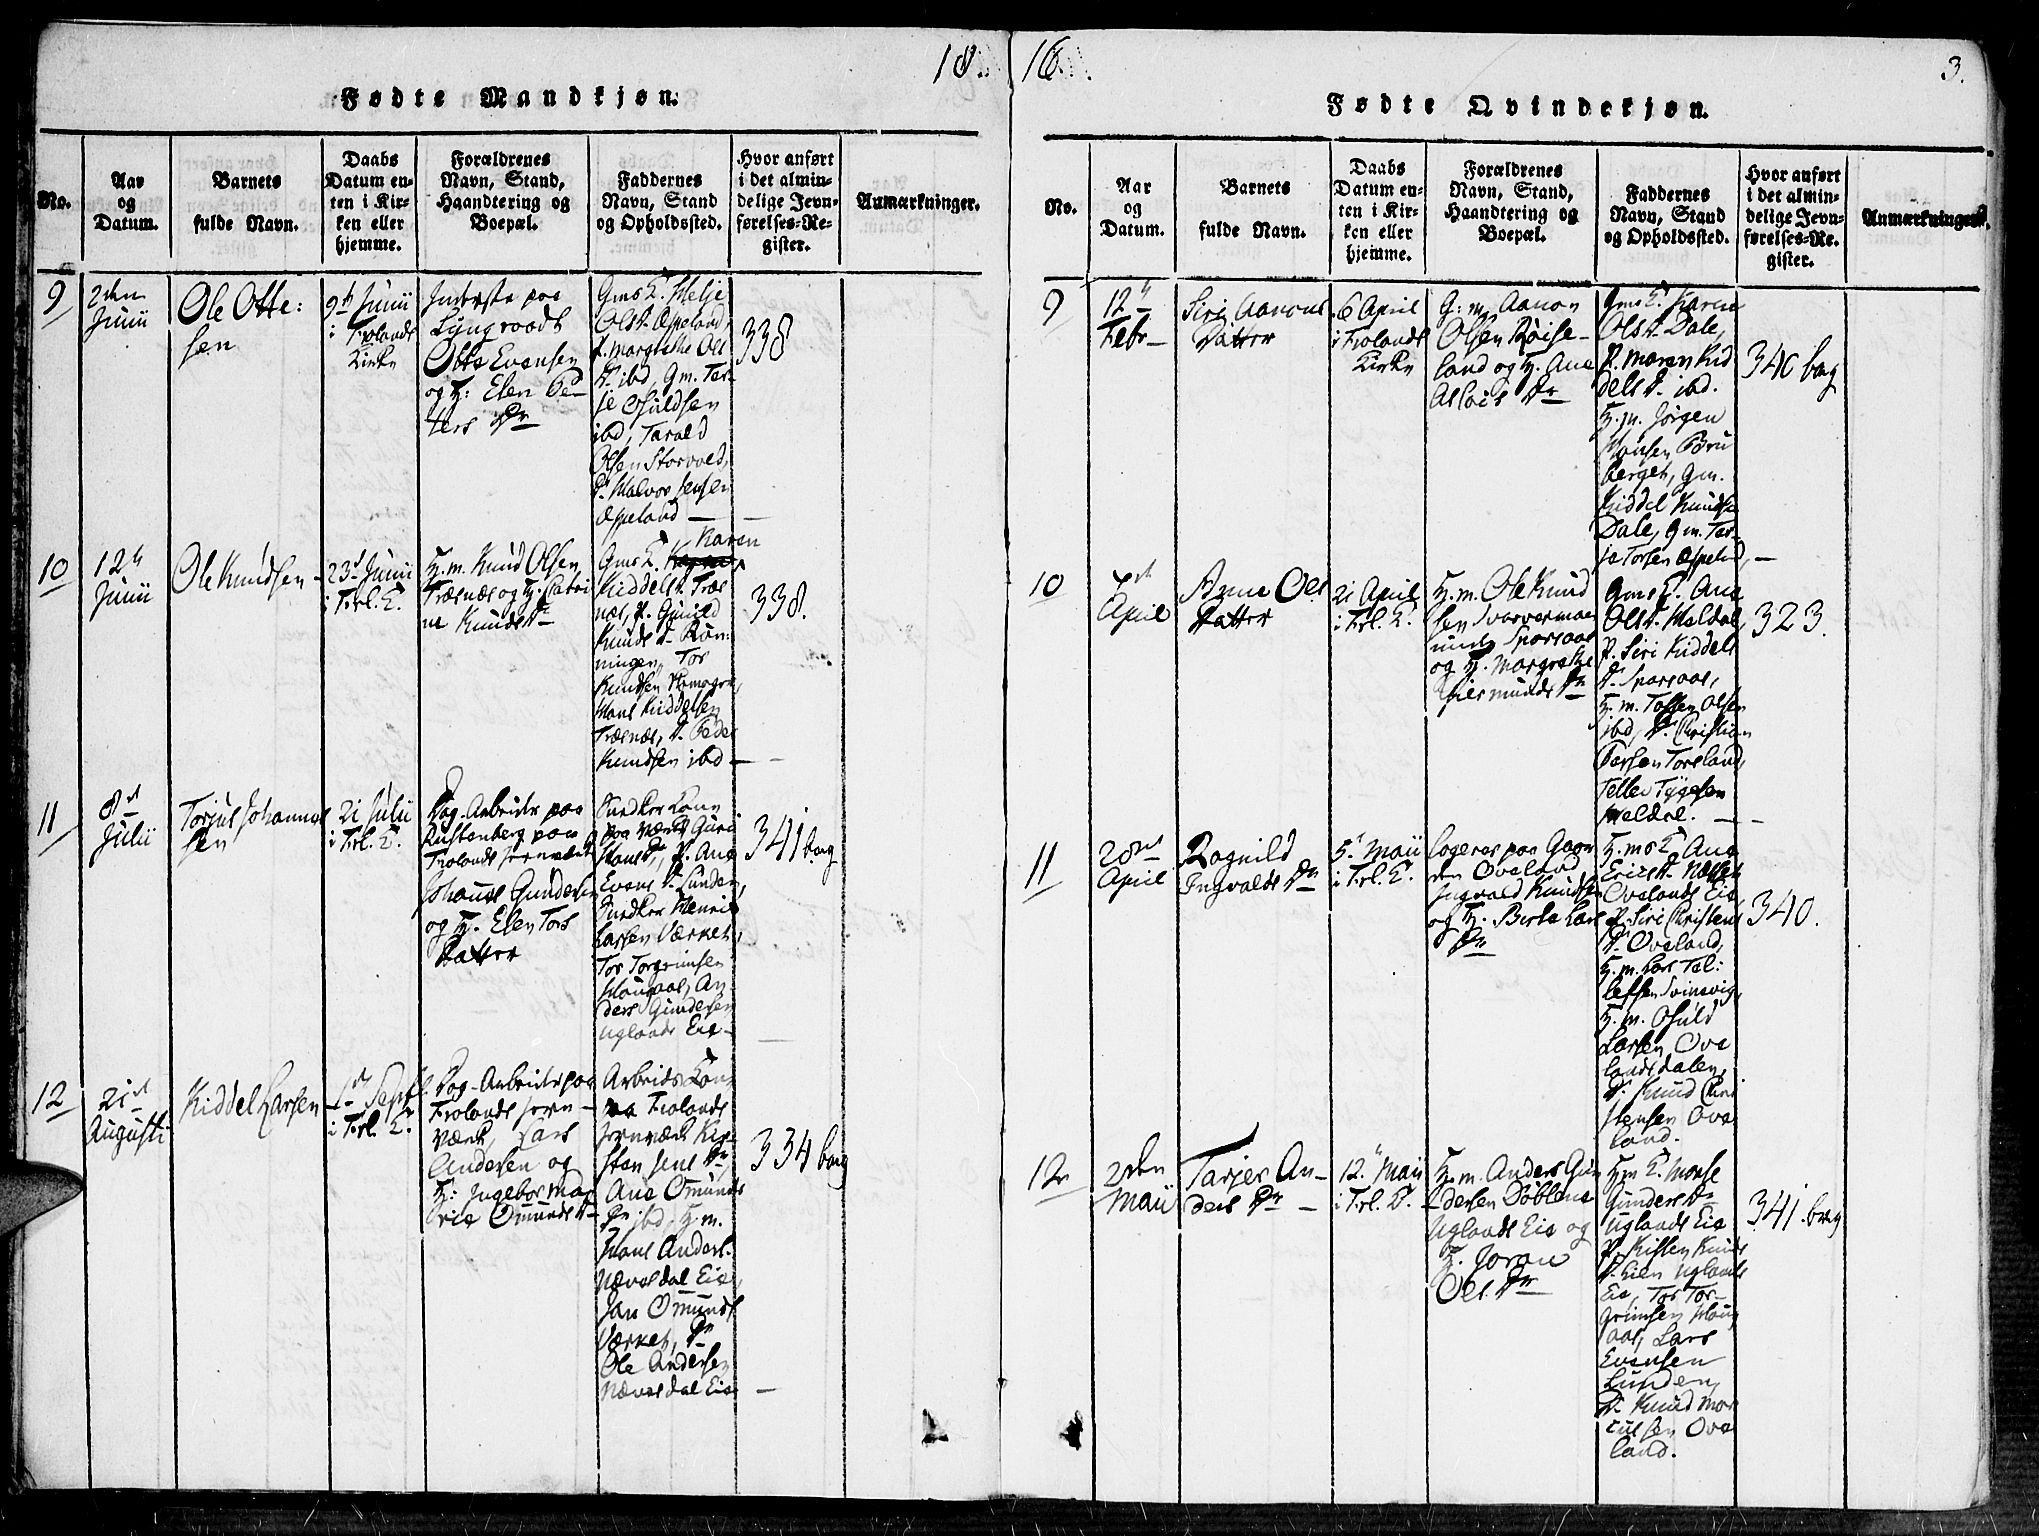 18
16
3.
Fødte Mandkjøn.
No.
Aar
og
Datum.
Barnets
fulde Navn.
Daabs
Datum en-
ten i Kir-
ken eller
hjemme.
Forældrenes
Navn, Stand,
Haandtering og
Boepæl.
Faddernes
Navn, Stand
og Opholdssted.
Hvor anført
i det almin-
delige Jevn-
førelses-Re-
gister.
Anmærkninger.
9
2den
Junii
Ole Otte:
sen
9d Junii
i Frolands
Kirke
Inderste paa
Lyngraadt
Otte Evensen
og H: Elen Pe-
ters Dr
Gms K. Helje
Ols D. Øpeland,
P. Margrethe Ols
D. ibd, Gm. Tar-
je Osuldsen
ibd, Tarald
Olsen Storvold,
D. Halvor Jensen
Øpeland —
338
10
12te
Junii
Ole Knudsen
23d Junii
i Frl. K.
H. m. Knud Olsen
Træsnæs og H. Catri
ne Knuds D
Gms K. Karen
Kiddels D. Træs
næs, P. Gunild
Knuds D. Røn-
ningen, Tor
Knudsen
Hans Kiddelsen
Træsnæs, D. Peder
Knudsen ibd —
338.
11
8d
Julii
Torjus Johannes
sen
21 Julii
i Frl. K.
Dag-Arbeider paa
Rustenberg paa
Frolands Jernværk
Johannes Gundersen
og H. Elen Tors
Datter
Snedker Kone
paa Værket Guri
Hans Dr, P. Ane
Evens D. Lunden,
Snedker Henrik
Larsen Værket,
Tor Torgrimsen
Hougaas, An-
ders Gundersen
Uglands Eie —
341 bag
12
21d
Augusti
Kiddel Larsen
1d Septbr.
i Frl. K.
Dag-Arbeider paa
Frolands Jern-
værk, Lars
Andersen og
H: Ingebor Ma-
rie Omunds D
Arbeids Kone
paa Frolands
Jernværk Kir-
sten Jens Dr
Ane Omunds
Dr ibd, H. m.
Hans Anders.
Nævesdal Eie,
Jan Omunds.
Værket, D
Ole Andersen
Nævesdal Eie —
334 bag
Fødte Qvindekjøn.
No.
Aar
og
Datum.
Barnets
fulde Navn.
Daabs
Datum en-
ten i Kir-
ken eller
hjemme.
Forældrenes
Navn, Stand,
Haandtering og
Boepæl.
Faddernes
Navn, Stand
og Opholdssted.
Hvor anført
i det almin-
delige Jevn-
førelses-Re-
gister.
Anmærkninger.
9
12te
Febr—
Siri Aanons
Datter
6 April
i Frolands
Kirke
G: m. Aanon
Olsen Røise-
land og H. Ane
Asloes Dr
Gms K. Karen
Ols D. Dale,
P. Maren Kid
dels D. ibd.
H. m. Jørgen
Monsen Bru
berget, Gm.
Kiddel Knudsen
Dale, Gm. Tar-
je Torsen Øpeland, —
340 bag
10
7d
April
Anne Ols
Datter
21 April
i Frl. K.
H. m. Ole Knud
sen Svarvermoen
under Sparsaas
og H. Margrethe
Giermunds Dr
Gms K. Ane
Ols D. Meldal,
P. Siri Kiddels
D. Sparsaas,
H. m. Tosten Olsen
ibd, D. Christian
Torsen Torsland,
Tellev Tygesen
Meldal. —
323.
11
28de
April
Ragnild
Ingvalds Dr
5. Maii
i Frl. K.
logerer paa Gaar
den Oveland
Ingvald Knudsen
og H. Berte Lars
Dr
H. ms K. Ane
Erics D. Næset
Ovelands Eie,
P. Siri Christens
D. Oveland,
H. m. Lars Tel:
lefsen Svinevig,
H. m. Osuld
Larsen Ove
landsdalen,
D. Knud Chri
stensen Ove
land.
340.
12
2den
Maii
Tarjer An-
ders Dr —
12. Maii
i Frl. K.
H. m. Anders Gun
dersen Dobbene
Uglands Eie og
H. Joran
Ols. Dr
Hm K. Monse
Gunders Dr
Uglands Eie
P. Kisten Knuds
D. Lien Uglands
Eie, Tor Tor-
grimsen Houg
aas, Lars
Evensen
Lunden,
D. Knud Mar
cussen Ove
land.
341. bag